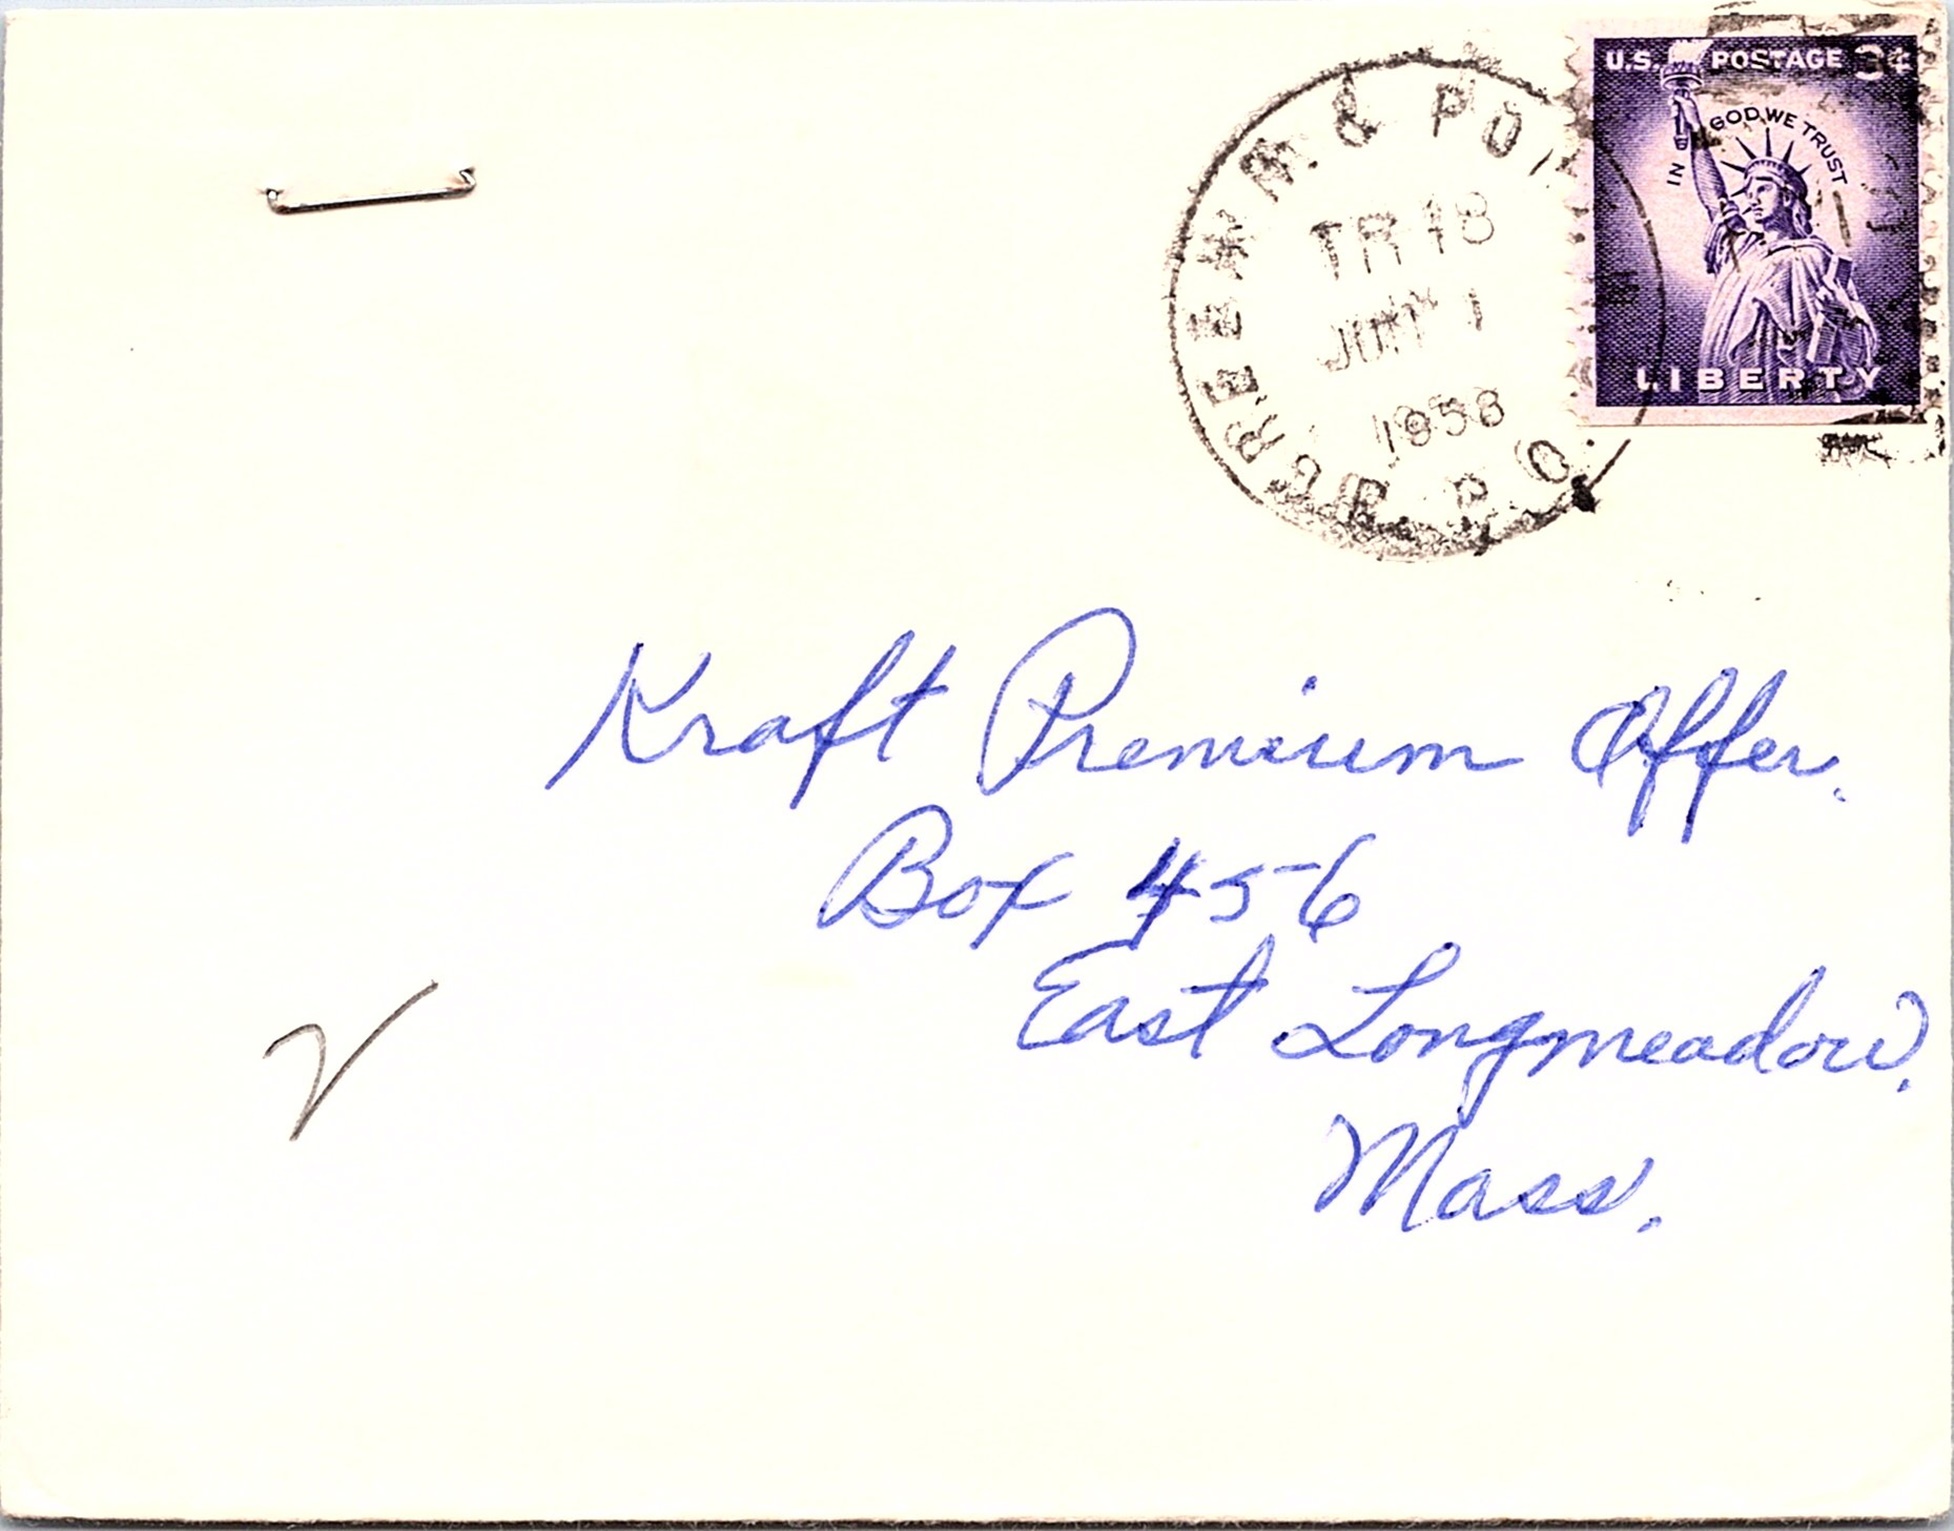 U.S. POSTAGE 3¢
IN GOD WE TRUST
LIBERTY
TR 18
1
1958
R.P.O.
Kraft Premium Offer.
Box 456
East Longmeadow,
Mass.